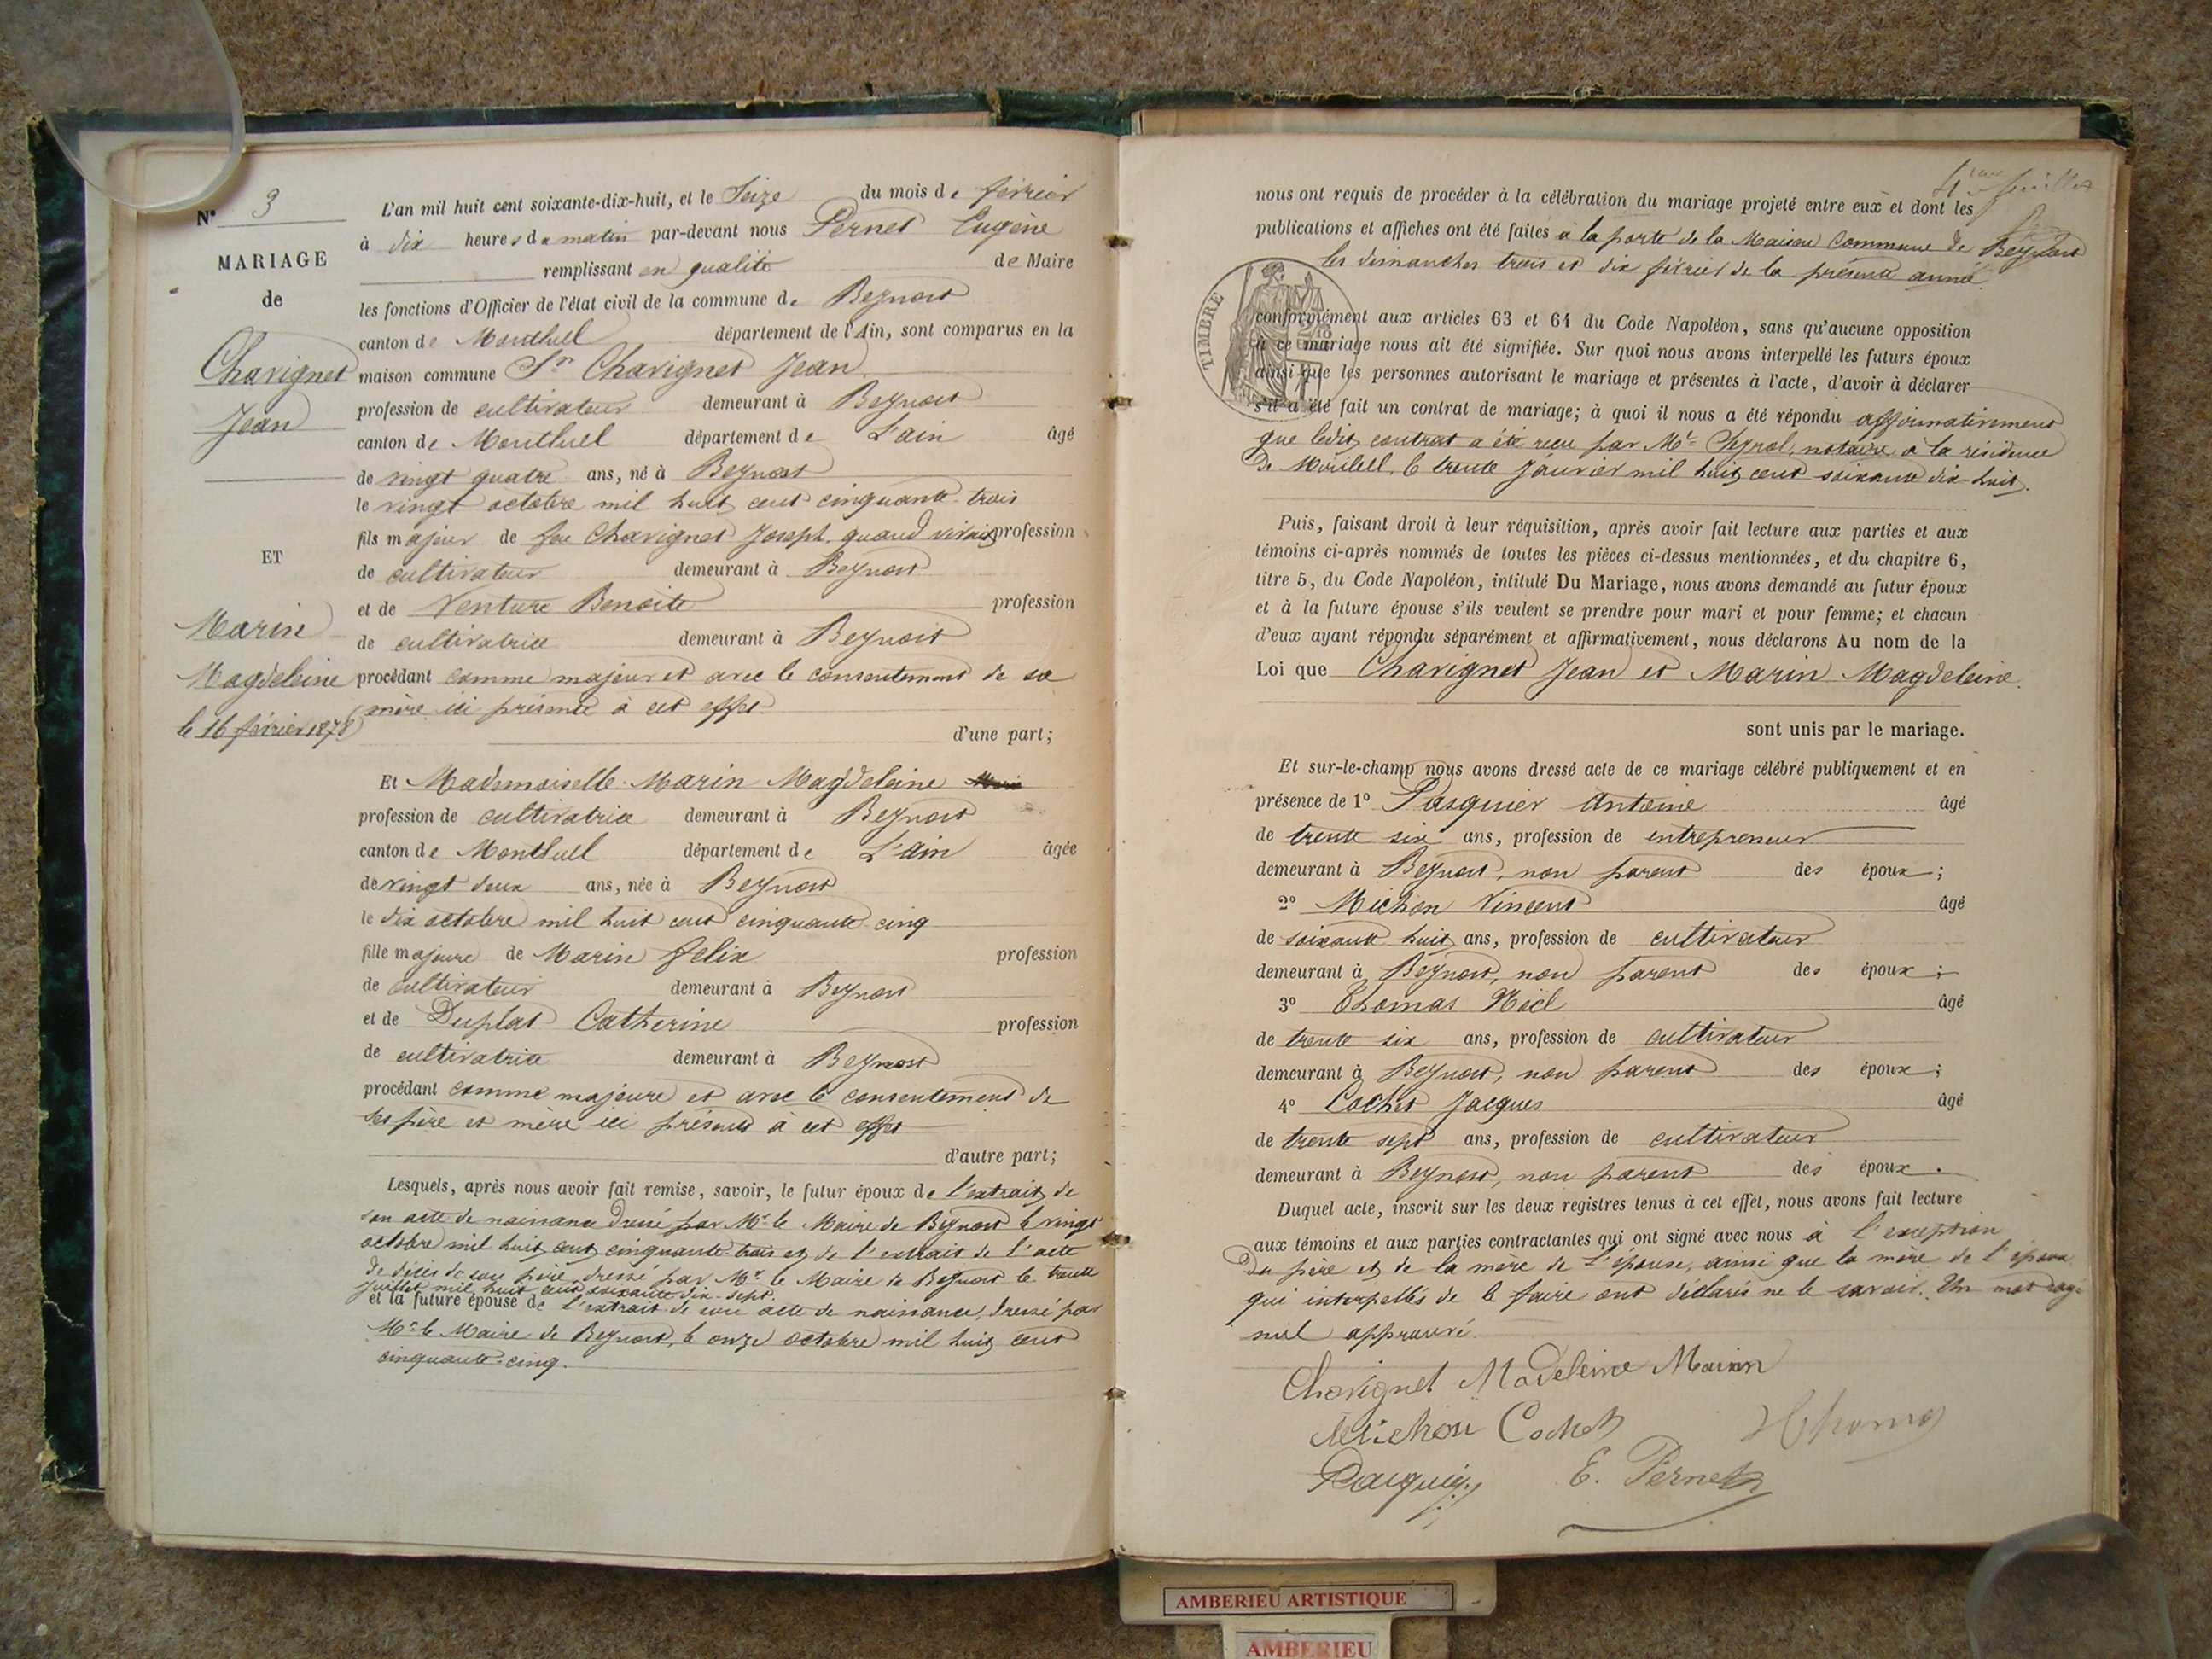 N° 3
MARIAGE
de
Chavignet
Jean
ET
Marin
Magdeleine
le 16 février 1878
L'an mil huit cent soixante-dix-huit, et le Seize du mois de février
à dix heures du matin par-devant nous Pernet Eugène
remplissant en qualité de Maire
les fonctions d'Officier de l'état civil de la commune de Beynost
canton de Montluel département de l'Ain, sont comparus en la
maison commune Sr Chavignet Jean
profession de cultivateur demeurant à Beynost
canton de Montluel département de L'ain âgé
de vingt quatre ans, né à Beynost
le vingt octobre mil huit cent cinquante-trois
fils majeur de feu Chavignet Joseph quand vivait profession
de cultivateur demeurant à Beynost
et de Venture Benoite profession
de cultivatrice demeurant à Beynost
procédant comme majeur et avec le consentement de sa
mère ici présente à cet effet
d'une part;
Et Mademoiselle Marin Magdeleine Marin
profession de cultivatrice demeurant à Beynost
canton de Montluel département de L'Ain âgée
de vingt deux ans, née à Beynost
le dix octobre mil huit cent cinquante-cinq
fille majeure de Marin felix profession
de cultivateur demeurant à Beynost
et de Duplat Catherine profession
de cultivatrice demeurant à Beynost
procédant comme majeure et avec le consentement de
ses père et mère ici présents à cet effet
d'autre part;
Lesquels, après nous avoir fait remise, savoir, le futur époux de l'extrait de
son acte de naissance dressé par Mr le Maire de Beynost le vingt
octobre mil huit cent cinquante-trois et de l'extrait de l'acte
de décès de son père, dressé par Mr le Maire de Beynost le trente
juillet mil huit cent soixante dix-sept.
et la future épouse de l'extrait de son acte de naissance, dressé par
Mr le Maire de Beynost, le onze octobre mil huit cent
cinquante-cinq.
nous ont requis de procéder à la célébration du mariage projeté entre eux et dont les
publications et affiches ont été faites à la porte de la Maison Commune de Beynost
les dimanches trois et dix février de la présente année
TIMBRE
conformément aux articles 63 et 64 du Code Napoléon, sans qu'aucune opposition
à ce mariage nous ait été signifiée. Sur quoi nous avons interpellé les futurs époux
ainsi que les personnes autorisant le mariage et présentes à l'acte, d'avoir à déclarer
s'il a été fait un contrat de mariage; à quoi il nous a été répondu affirmativement
que ledit contrat a été reçu par Me notaire à la résidence
de le trente Janvier mil huit cent soixante dix-huit.
Puis, faisant droit à leur réquisition, après avoir fait lecture aux parties et aux
témoins ci-après nommés de toutes les pièces ci-dessus mentionnées, et du chapitre 6,
titre 5, du Code Napoléon, intitulé Du Mariage, nous avons demandé au futur époux
et à la future épouse s'ils veulent se prendre pour mari et pour femme; et chacun
d'eux ayant répondu séparément et affirmativement, nous déclarons Au nom de la
Loi que Chavignet Jean et Marin Magdeleine
sont unis par le mariage.
Et sur-le-champ nous avons dressé acte de ce mariage célébré publiquement et en
présence de 1° Pasquier Antoine âgé
de trente six ans, profession de entrepreneur
demeurant à Beynost, non parent des époux;
2° Michon Vincent âgé
de soixante huit ans, profession de cultivateur
demeurant à Beynost, non parent des époux;
3° Thomas Noël âgé
de trente six ans, profession de cultivateur
demeurant à Beynost, non parent des époux;
4° Cochet Jacques âgé
de trente sept ans, profession de cultivateur
demeurant à Beynost, non parent des époux.
Duquel acte, inscrit sur les deux registres tenus à cet effet, nous avons fait lecture
aux témoins et aux parties contractantes qui ont signé avec nous à l'exception
Du père et de la mère de L'épouse, ainsi que la mère de l'époux
qui interpellés de le faire ont déclarés ne le savoir. Un mot rayé
nul approuvé
Chavignet Madeleine Marin
Michon Cochet Thoma
Pasquier E. Pernet
AMBERIEU ARTISTIQUE
AMBERIEU